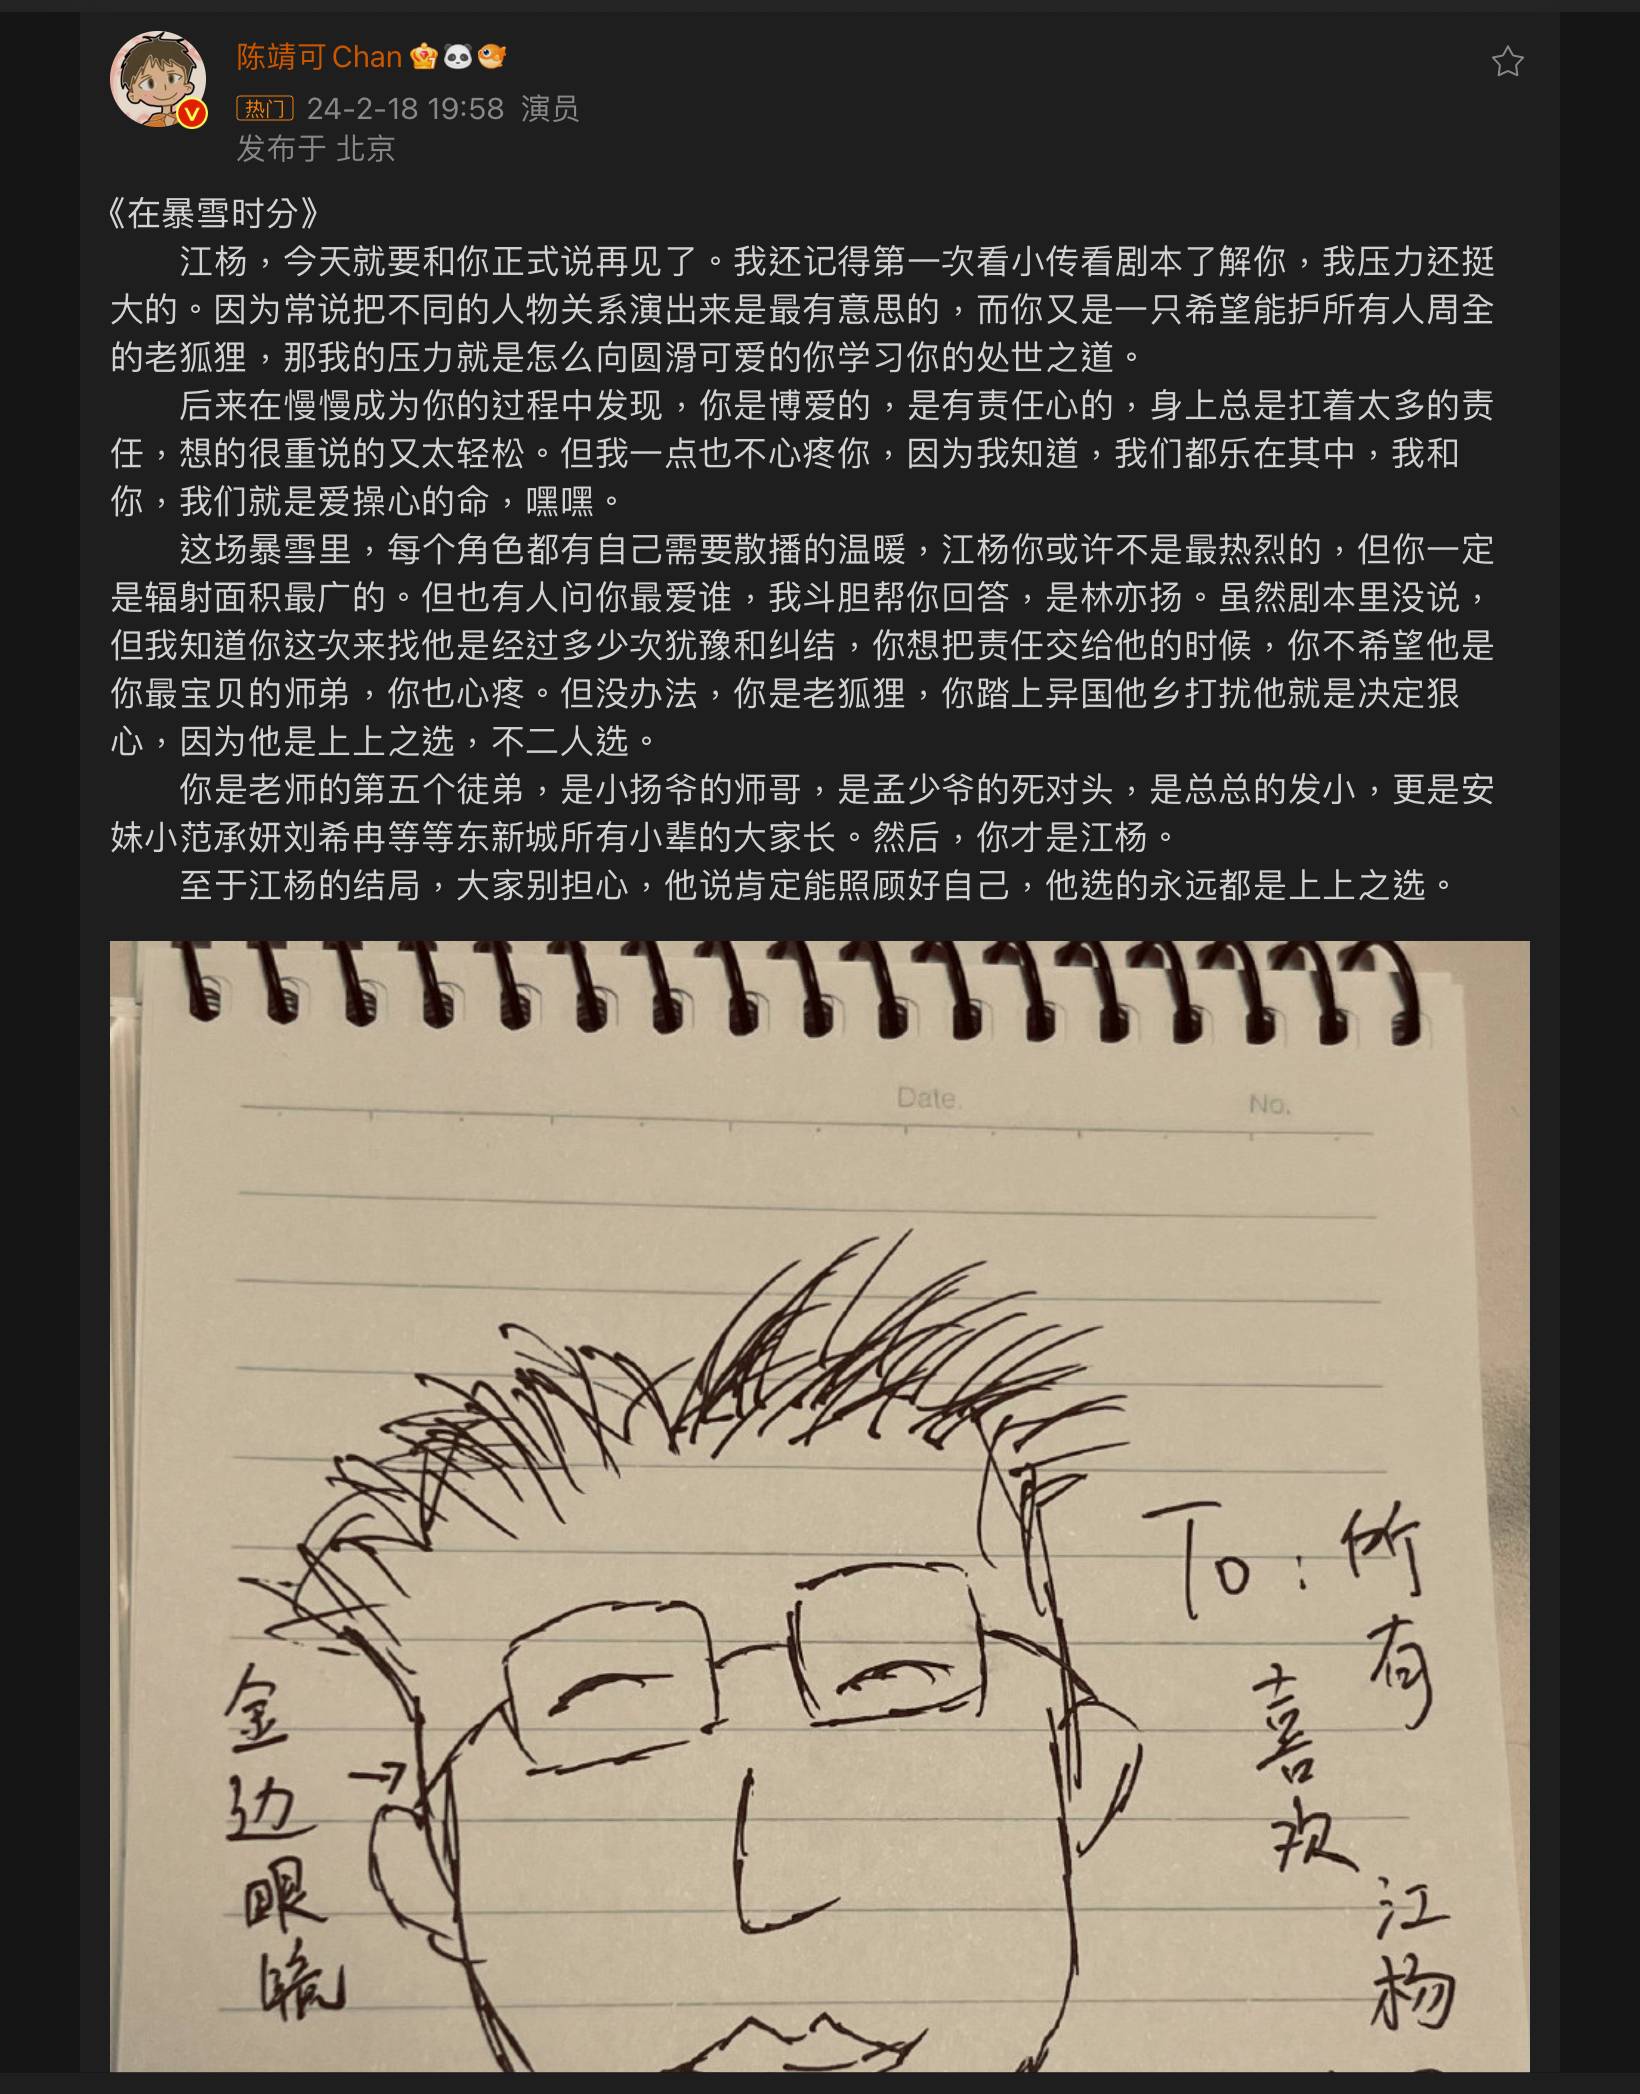 陈靖可Chan
热门 24-2-18 19:58 演员
发布于 北京
《在暴雪时分》
江杨，今天就要和你正式说再见了。我还记得第一次看小传看剧本了解你，我压力还挺
大的。因为常说把不同的人物关系演出来是最有意思的，而你又是一只希望能护所有人周全
的老狐狸，那我的压力就是怎么向圆滑可爱的你学习你的处世之道。
后来在慢慢成为你的过程中发现，你是博爱的，是有责任心的，身上总是扛着太多的责
任，想的很重说的又太轻松。但我一点也不心疼你，因为我知道，我们都乐在其中，我和
你，我们就是爱操心的命，嘿嘿。
这场暴雪里，每个角色都有自己需要散播的温暖，江杨你或许不是最热烈的，但你一定
是辐射面积最广的。但也有人问你最爱谁，我斗胆帮你回答，是林亦扬。虽然剧本里没说，
但我知道你这次来找他是经过多少次犹豫和纠结，你想把责任交给他的时候，你不希望他是
你最宝贝的师弟，你也心疼。但没办法，你是老狐狸，你踏上异国他乡打扰他就是决定狠
心，因为他是上上之选，不二人选。
你是老师的第五个徒弟，是小扬爷的师哥，是孟少爷的死对头，是总总的发小，更是安
妹小范承妍刘希冉等等东新城所有小辈的大家长。然后，你才是江杨。
至于江杨的结局，大家别担心，他说肯定能照顾好自己，他选的永远都是上上之选。
Date.
No.
To：所有
喜欢
江杨
金边眼镜